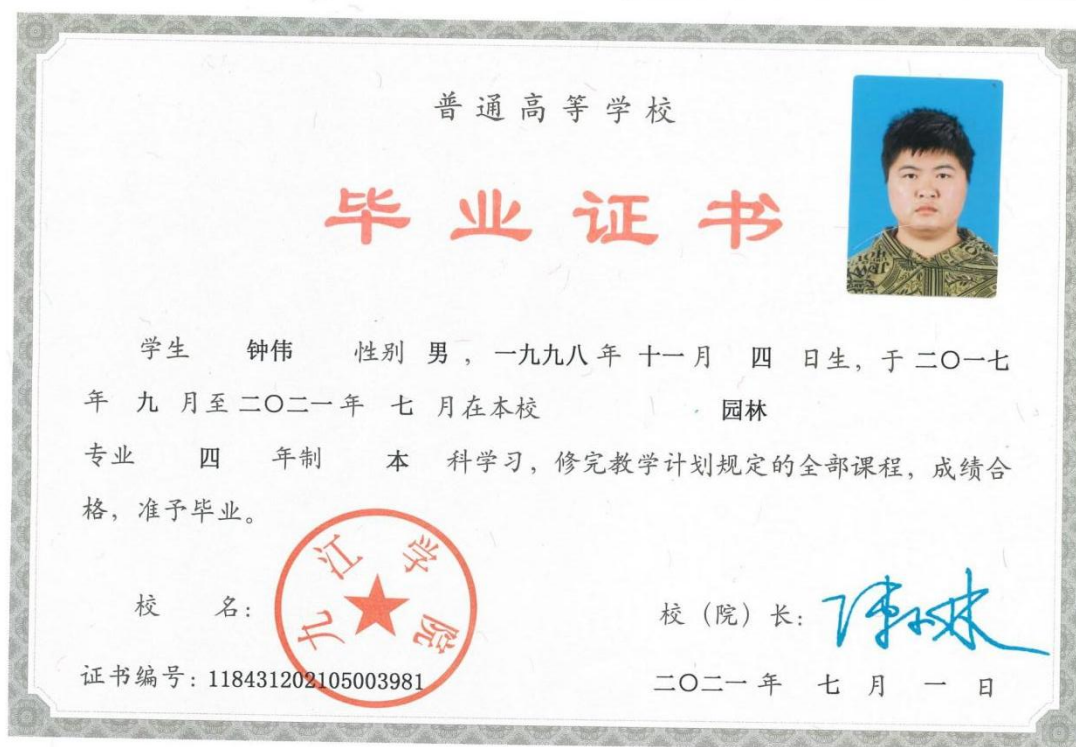 普通高等学校
毕业证书
学生 钟伟 性别 男 ，一九九八 年 十一 月 四 日生，于 二〇一七
年 九 月至 二〇二一 年 七 月在本校 园林
专业 四 年制 本 科学习，修完教学计划规定的全部课程，成绩合
格，准予毕业。
九江学院
校 名：
校（院）长：
证书编号：118431202105003981
二〇二一 年 七 月 一 日